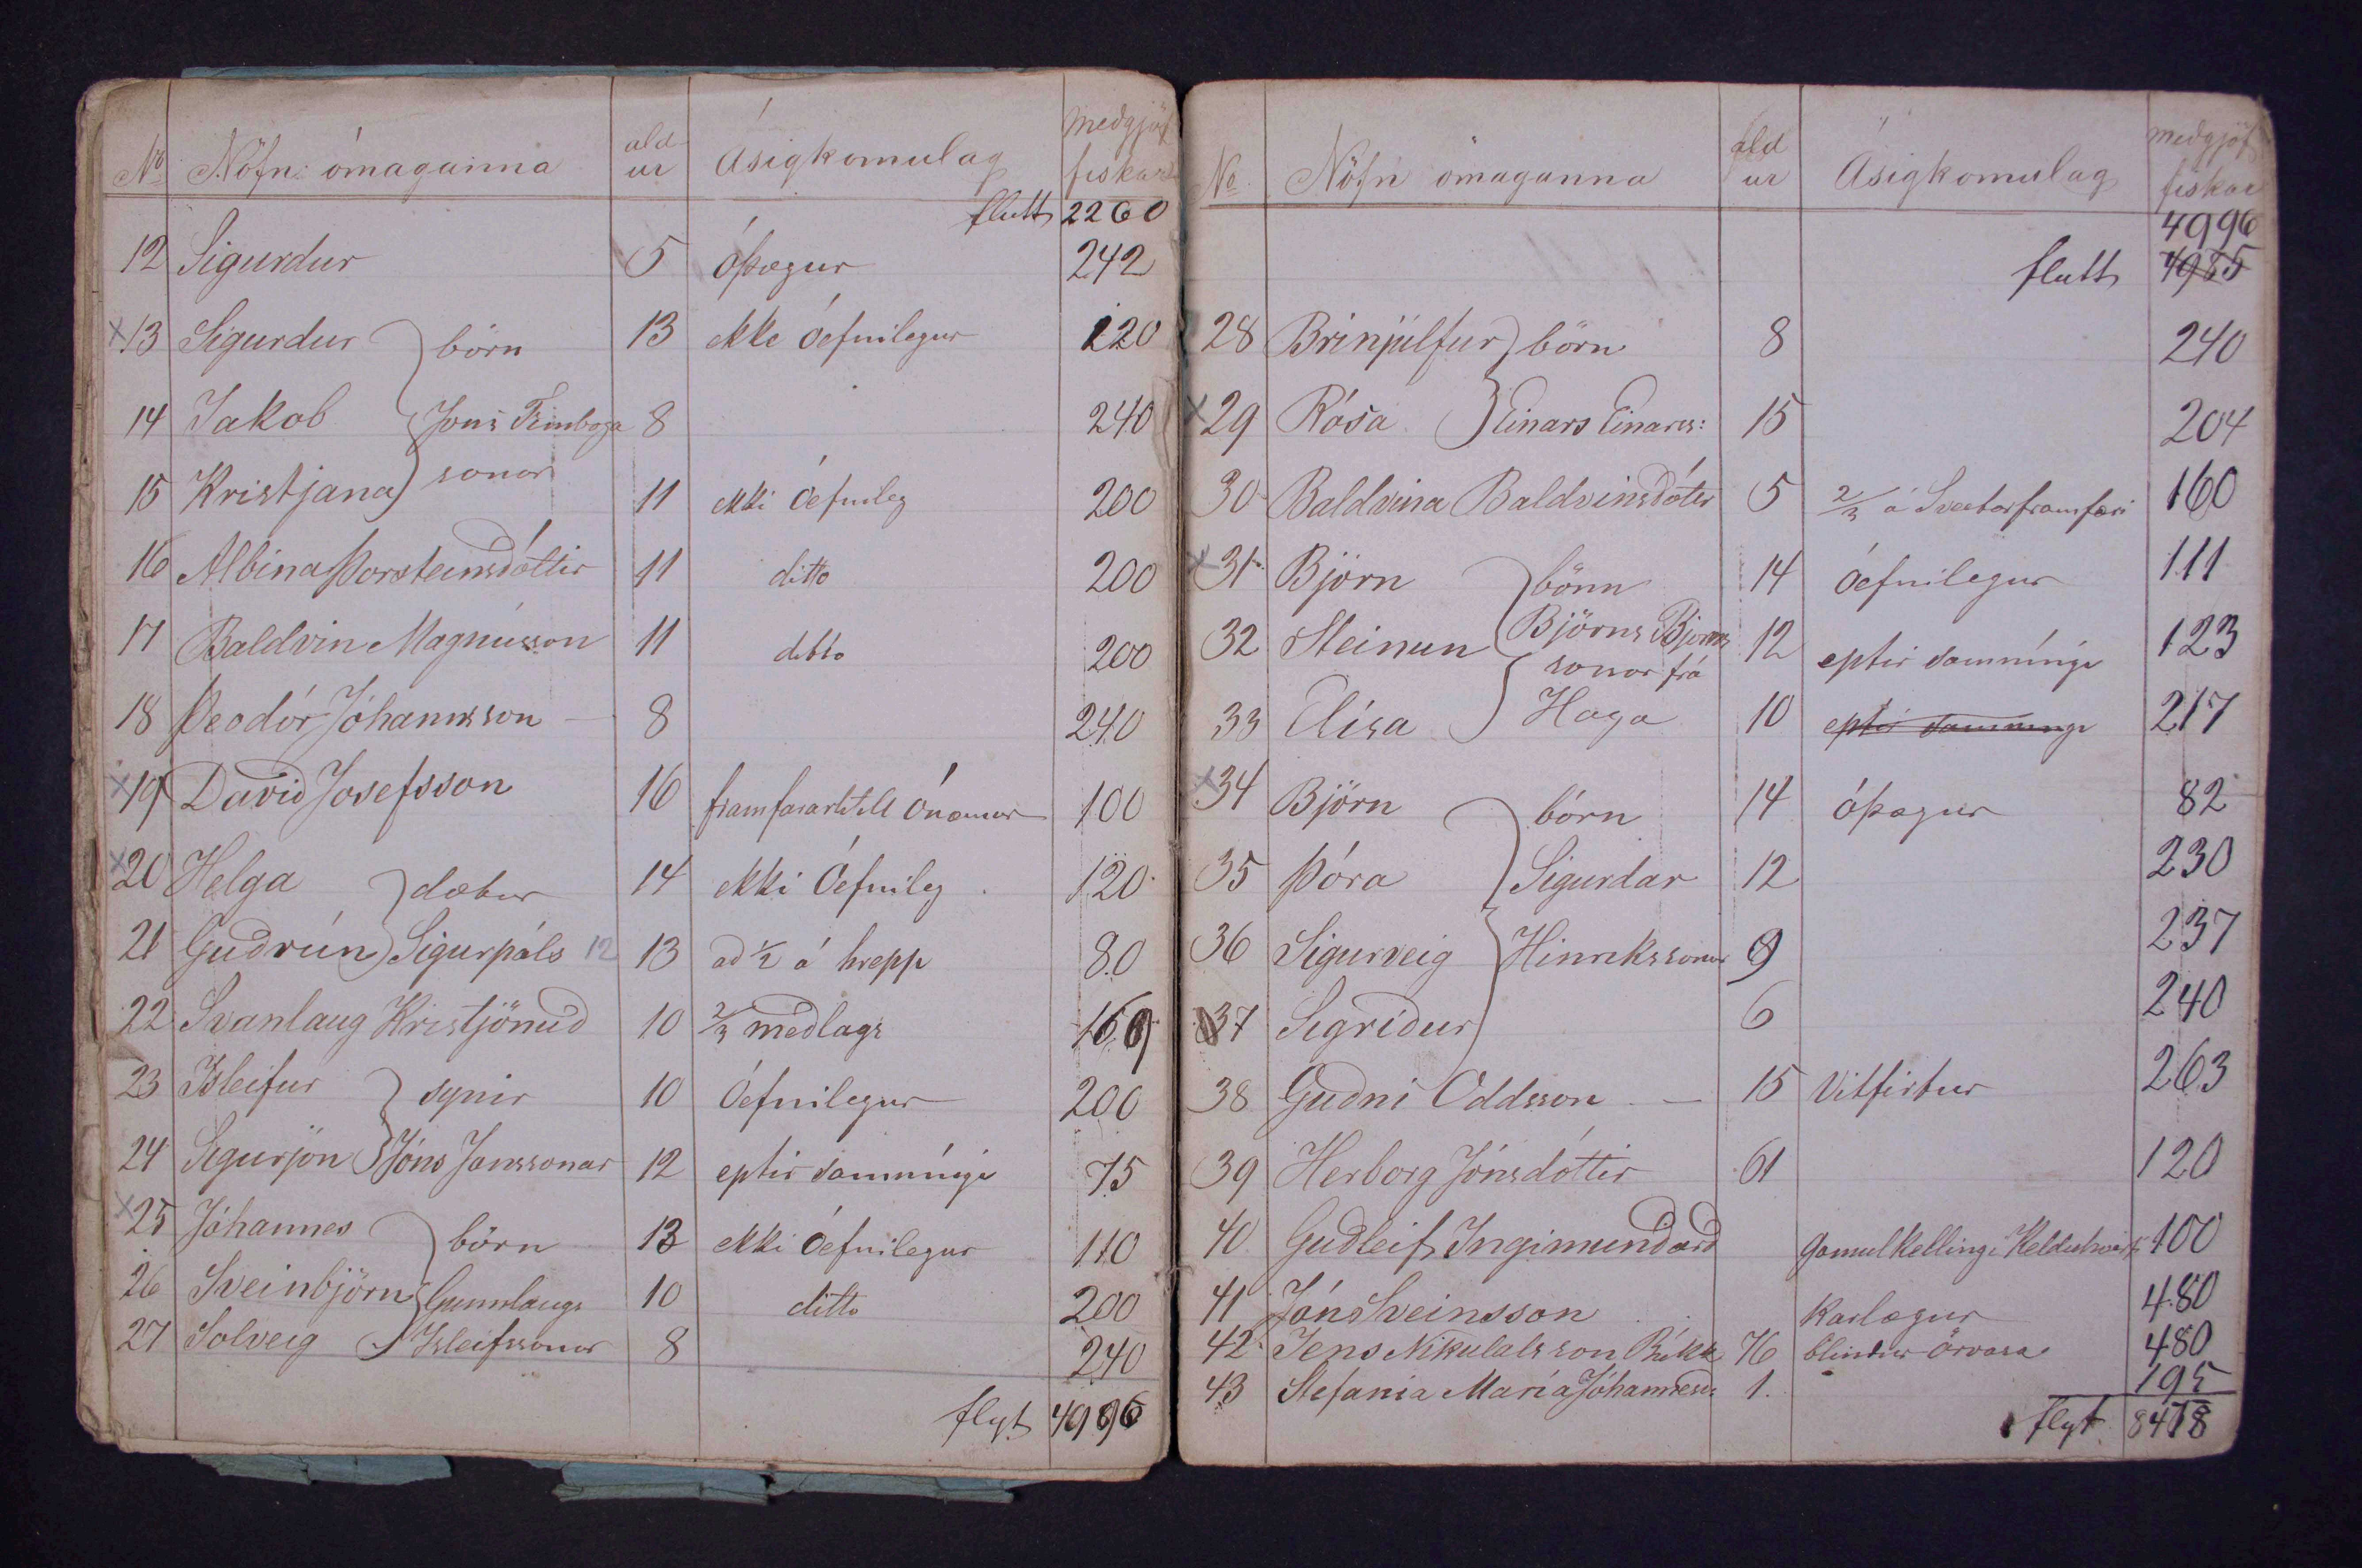 No Nöfn ómaganna ald ur Ásigkomulag medgjöf fiskar
flutt 2260
12 Sigurdur 5 óþægur 242
x 13 Sigurdur börn 13 ekke óefnilegur 120
14 Jakob Jóns Finboga 8 240
15 Kristjana sonar 11 ekki óefnileg 200
16 Albina Þorsteinsdóttir 11 ditto 200
17 Baldvin Magnússon 11 ditto 200
18 Þeodór Jóhannsson 8 240
x 19 Davið Josefsson 16 framfararlitill ónæmur 100
x 20 Helga dætur 14 ekki Óefnileg 120
21 Guðrún Sigurpáls 12 13 að 1/2 á hrepp 80
22 Svanlaug Kristjönud 10 2/3 meðlags 169
23 Ísleifur synir 10 Óefnilegur 200
24 Sigurjón Jóns Jonssonar 12 eptir samníngi 75
x 25 Jóhannes börn 13 ekki óefnilegur 110
26 Sveinbjörn Gunnlaugs 10 ditto 200
27 Solveig Ísleifssonar 8 240
flyt 4996
No Nöfn ómaganna ald ur Ásigkomulag medgjöf fiskar
4996
flutt 4985
28 Brinjúlfur börn 8 240
x 29 Rósa Einars Einarss: 15 204
30 Baldvina Baldvinsdóttir 5 2/3 á Sveitarframfæri 160
x 31 Björn börn 14 óefnilegur 111
32 Steinun Björns Björns 12 eptir samníngi 123
sonar frá
33 Elísa Haga 10 eptir samningi 217
x 34 Björn börn 14 óþægur 82
35 Þóra Sigurdar 12 230
36 Sigurveig Hinrikssonar 9 237
37 Sigríður 6 240
38 Guðni Oddsson 15 Vitfirtur 263
39 Herborg Jónsdóttir 61 120
40 Guðleif Ingimundard gömul kelling í Kelduhverfi 100
41 Jóns Sveinsson Karlægur 480
42 Jens Nikulalsson 76 blindur örvasa 480
43 Stefania María Jóhannesd: 1. 195
flyt 8478